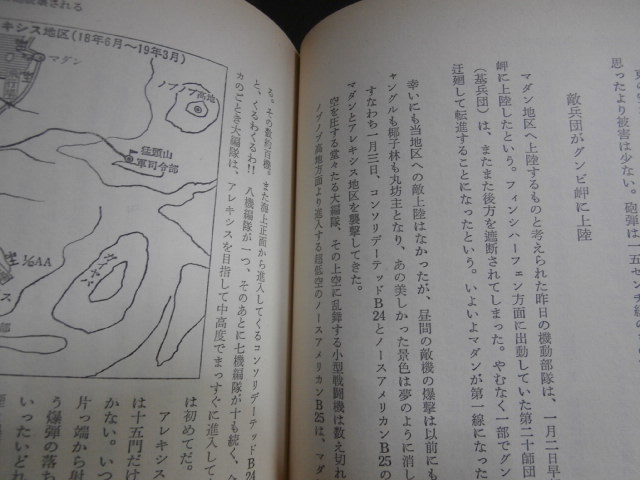 思ったより被害は少ない。砲弾は一五センチ
敵兵団がグンビ岬に上陸
マダン地区へ上陸するものと考えられた昨日の機動部隊は、一月二日早
岬に上陸したという。フィンシハーフェン方面に出動していた第二十師団
（基兵団）は、またまた後方を遮断されてしまった。やむなく一部でグン
迂廻して転進することになったという。いよいよマダンが第一線になった
幸いにも当地区への敵上陸はなかったが、昼間の敵機の爆撃は以前にも
ャングルも椰子林も丸坊主となり、あの美しかった景色は夢のように消し
すなわち一月三日、コンソリデーテッドB24とノースアメリカンB25の
マダンとアレキシス地区を襲撃してきた。
空を圧する堂々たる大編隊、その上空に乱舞する小型戦闘機は数え切れ
ノブノブ高地方面より進入する超低空のノースアメリカンB25は、マダ
される
キシス地区(18年6月～19年3月)
マダン
ノブノブ高地
猛頭山
軍司令部
36AA
る。その数約百機。また海上正面から進入してくるコンソリデーテッドB24
と、くるわくるわ!! 八機編隊が一つ、そのあとに七機編隊が十も続く、
カのごとき大編隊は、アレキシスを目指して中高度でまっすぐに進入して
は初めてだ。
アレキシ
は十五門だけ
かない。いつ
片っ端から射
う爆弾の落ち
いったいどれ